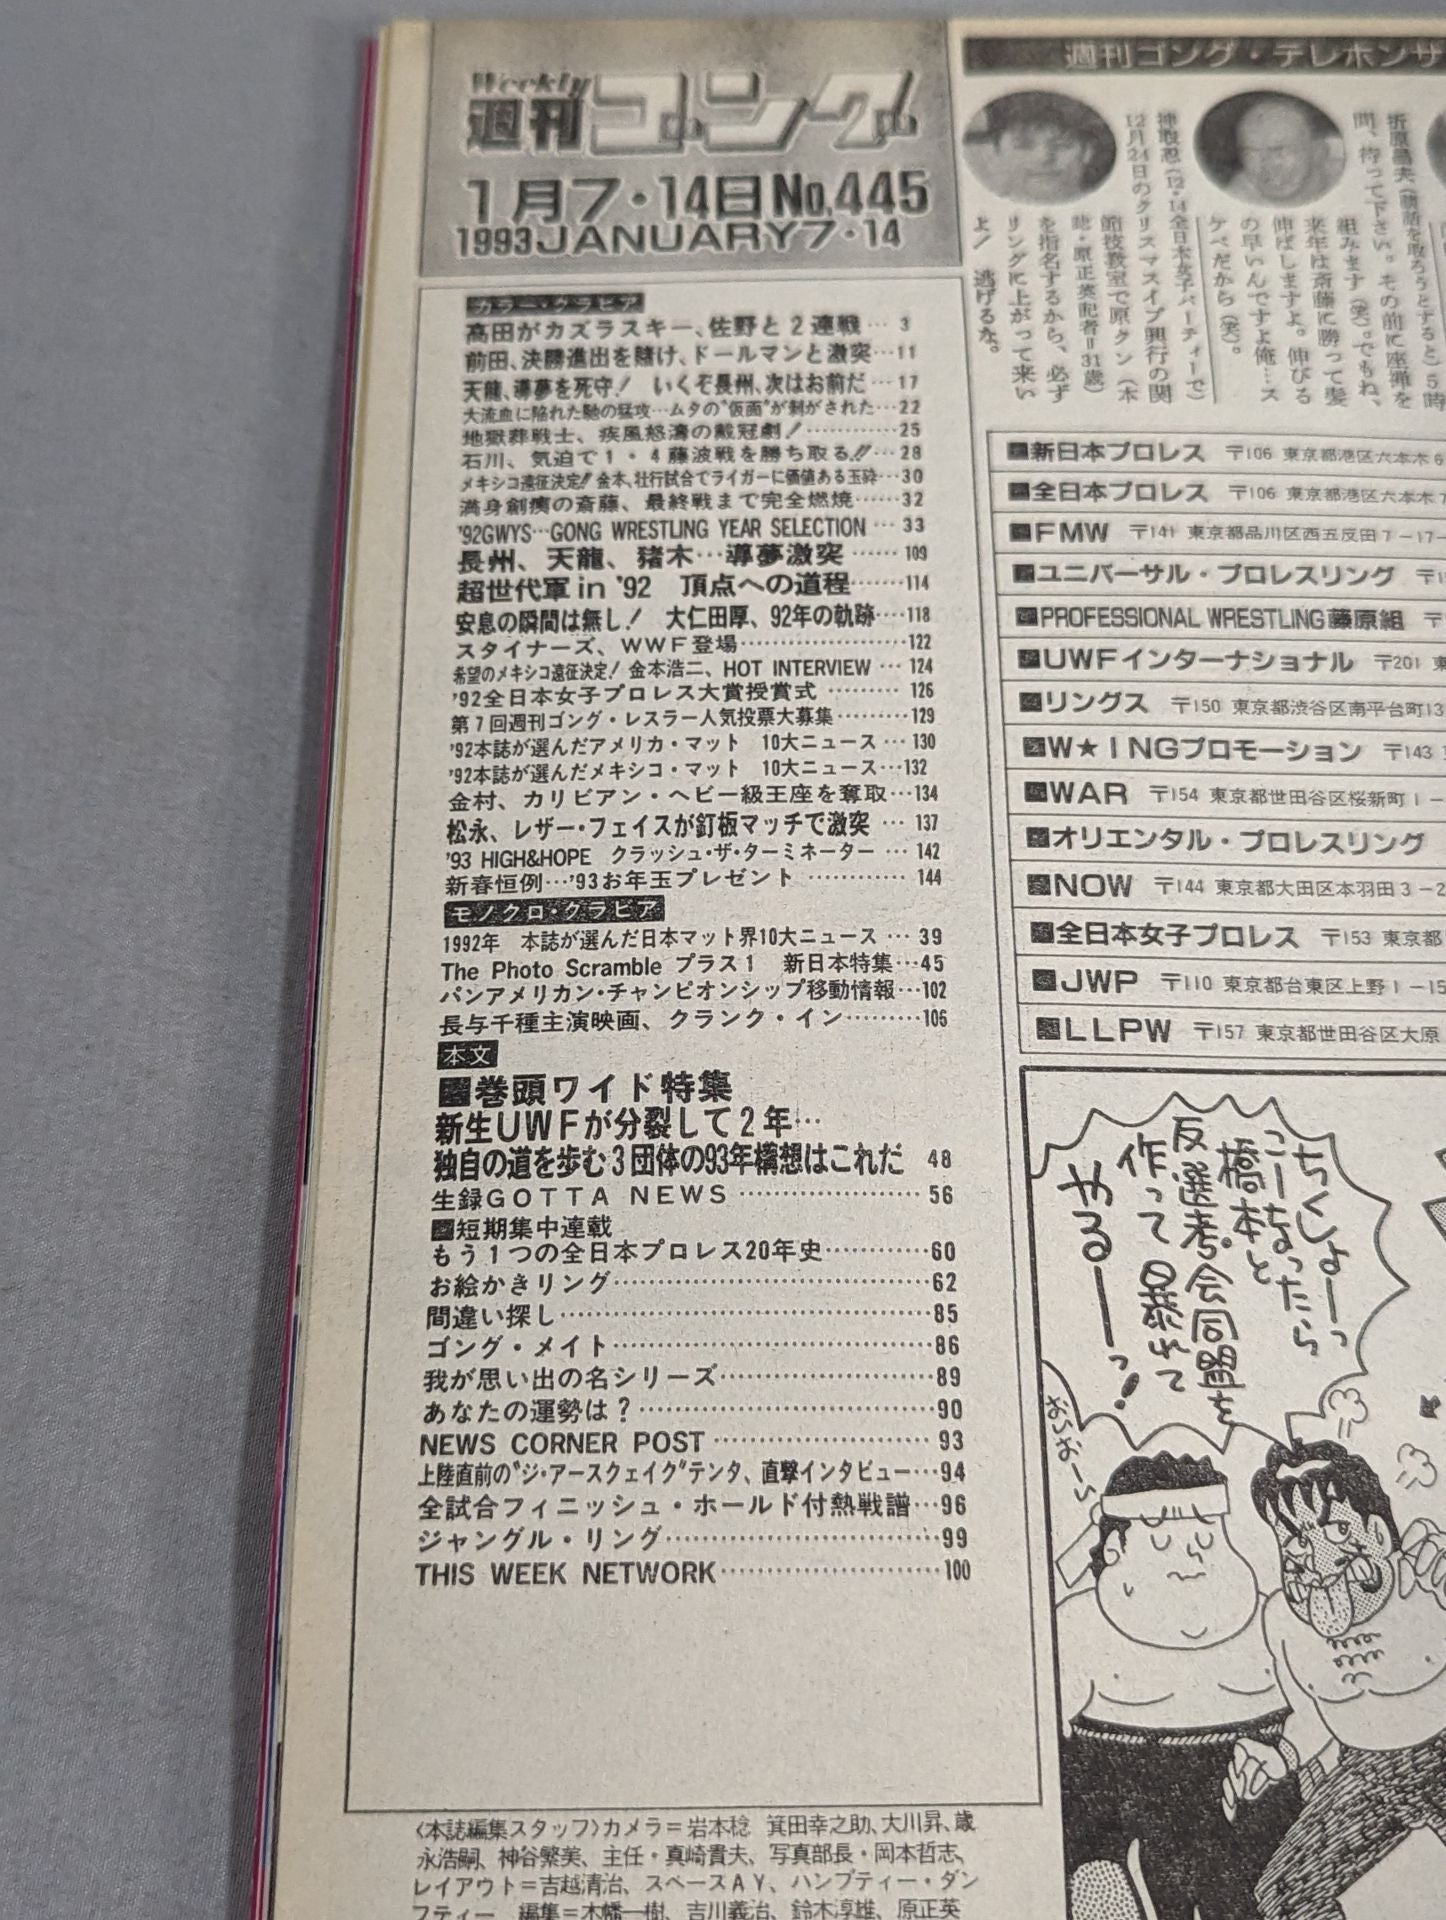 Weekly
週刊ゴング
1月7・14日No.445
1993JANUARY7・14
カラー・グラビア
高田がカズラスキー、佐野と2連戦… 3
前田、決勝進出を賭け、ドールマンと激突…11
天龍、導夢を死守！ いくぞ長州、次はお前だ…17
大流血に陥れた馳の猛攻…ムタの“仮面”が剝がされた…22
地獄葬戦士、疾風怒濤の戴冠劇！…………25
石川、気迫で1・4藤波戦を勝ち取る!!…28
メキシコ遠征決定!! 金本、壮行試合でライガーに価値ある玉砕…30
満身創痍の斎藤、最終戦まで完全燃焼……32
'92GWYS…GONG WRESTLING YEAR SELECTION … 33
長州、天龍、猪木…導夢激突 …… 109
超世代軍in '92 頂点への道程……114
安息の瞬間は無し！ 大仁田厚、92年の軌跡…118
スタイナーズ、WWF登場………………122
希望のメキシコ遠征決定！ 金本浩二、HOT INTERVIEW … 124
'92全日本女子プロレス大賞授賞式 ……… 126
第7回週刊ゴング・レスラー人気投票大募集………129
'92本誌が選んだアメリカ・マット 10大ニュース … 130
'92本誌が選んだメキシコ・マット 10大ニュース…132
金村、カリビアン・ヘビー級王座を奪取…134
松永、レザー・フェイスが釘板マッチで激突 … 137
'93 HIGH&HOPE クラッシュ・ザ・ターミネーター … 142
新春恒例…'93お年玉プレゼント ………… 144
モノクロ・グラビア
1992年 本誌が選んだ日本マット界10大ニュース … 39
The Photo Scramble プラス1 新日本特集…45
パンアメリカン・チャンピオンシップ移動情報…102
長与千種主演映画、クランク・イン………106
本文
巻頭ワイド特集
新生UWFが分裂して2年…
独自の道を歩む3団体の93年構想はこれだ 48
生録GOTTA NEWS ………………… 56
短期集中連載
もう1つの全日本プロレス20年史…………60
お絵かきリング………………………………62
間違い探し……………………………………85
ゴング・メイト………………………………86
我が思い出の名シリーズ……………………89
あなたの運勢は？……………………………90
NEWS CORNER POST …………………… 93
上陸直前の“ジ・アースクェイク”テンタ、直撃インタビュー…94
全試合フィニッシュ・ホールド付熱戦譜…96
ジャングル・リング…………………………99
THIS WEEK NETWORK……………………100
〈本誌編集スタッフ〉カメラ＝岩本稔 箕田幸之助、大川昇、歳
永浩嗣、神谷繁美、主任・真崎貴夫、写真部長・岡本哲志、
レイアウト＝吉越清治、スペースAY、ハンプティー・ダン
フティー 編集＝木幡一樹、吉川義治、鈴木淳雄、原正英
週刊ゴング・テレホンサ
折原昌夫(髷話を取ろうとすると)5時
間、待って下さい。その前に座禅を
組みます(笑)。でもね、
来年は斎藤に勝って髪
伸ばしますよ。伸びる
の早いんですよ俺…ス
ケベだから(笑)。
神取忍(12・14全日本女子パーティーで)
12月24日のクリスマスイブ興行の関
節技教室で原クン(本
誌・原正英記者＝31歳)
を指名するから、必ず
リングに上がって来い
よ！ 逃げるな。
新日本プロレス 〒106 東京都港区六本木6
全日本プロレス 〒106 東京都港区六本木7
FMW 〒141 東京都品川区西五反田7－17－
ユニバーサル・プロレスリング 〒1
PROFESSIONAL WRESTLING藤原組 〒
UWFインターナショナル 〒201 東
リングス 〒150 東京都渋谷区南平台町13
W★INGプロモーション 〒143
WAR 〒154 東京都世田谷区桜新町1－
オリエンタル・プロレスリング
NOW 〒144 東京都大田区本羽田3－2
全日本女子プロレス 〒153 東京都
JWP 〒110 東京都台東区上野1－15
LLPW 〒157 東京都世田谷区大原
ちくしょーっ
こーなったら
橋本と
反選考会同盟を
作って暴れて
やるーーっ！
おらおーい